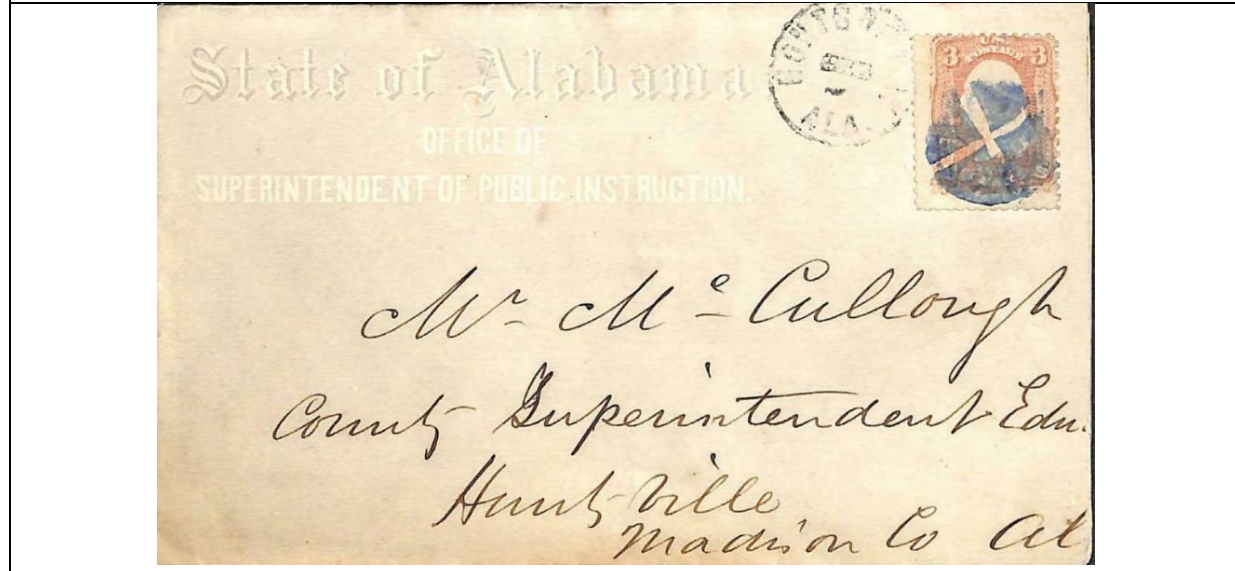 State of Alabama
OFFICE OF
SUPERINTENDENT OF PUBLIC INSTRUCTION.
MONTGOM
ALA.
3 U.S. POSTAGE 3
Mr Mc Cullough
County Superintendent Edu.
Huntsville
Madison Co Al